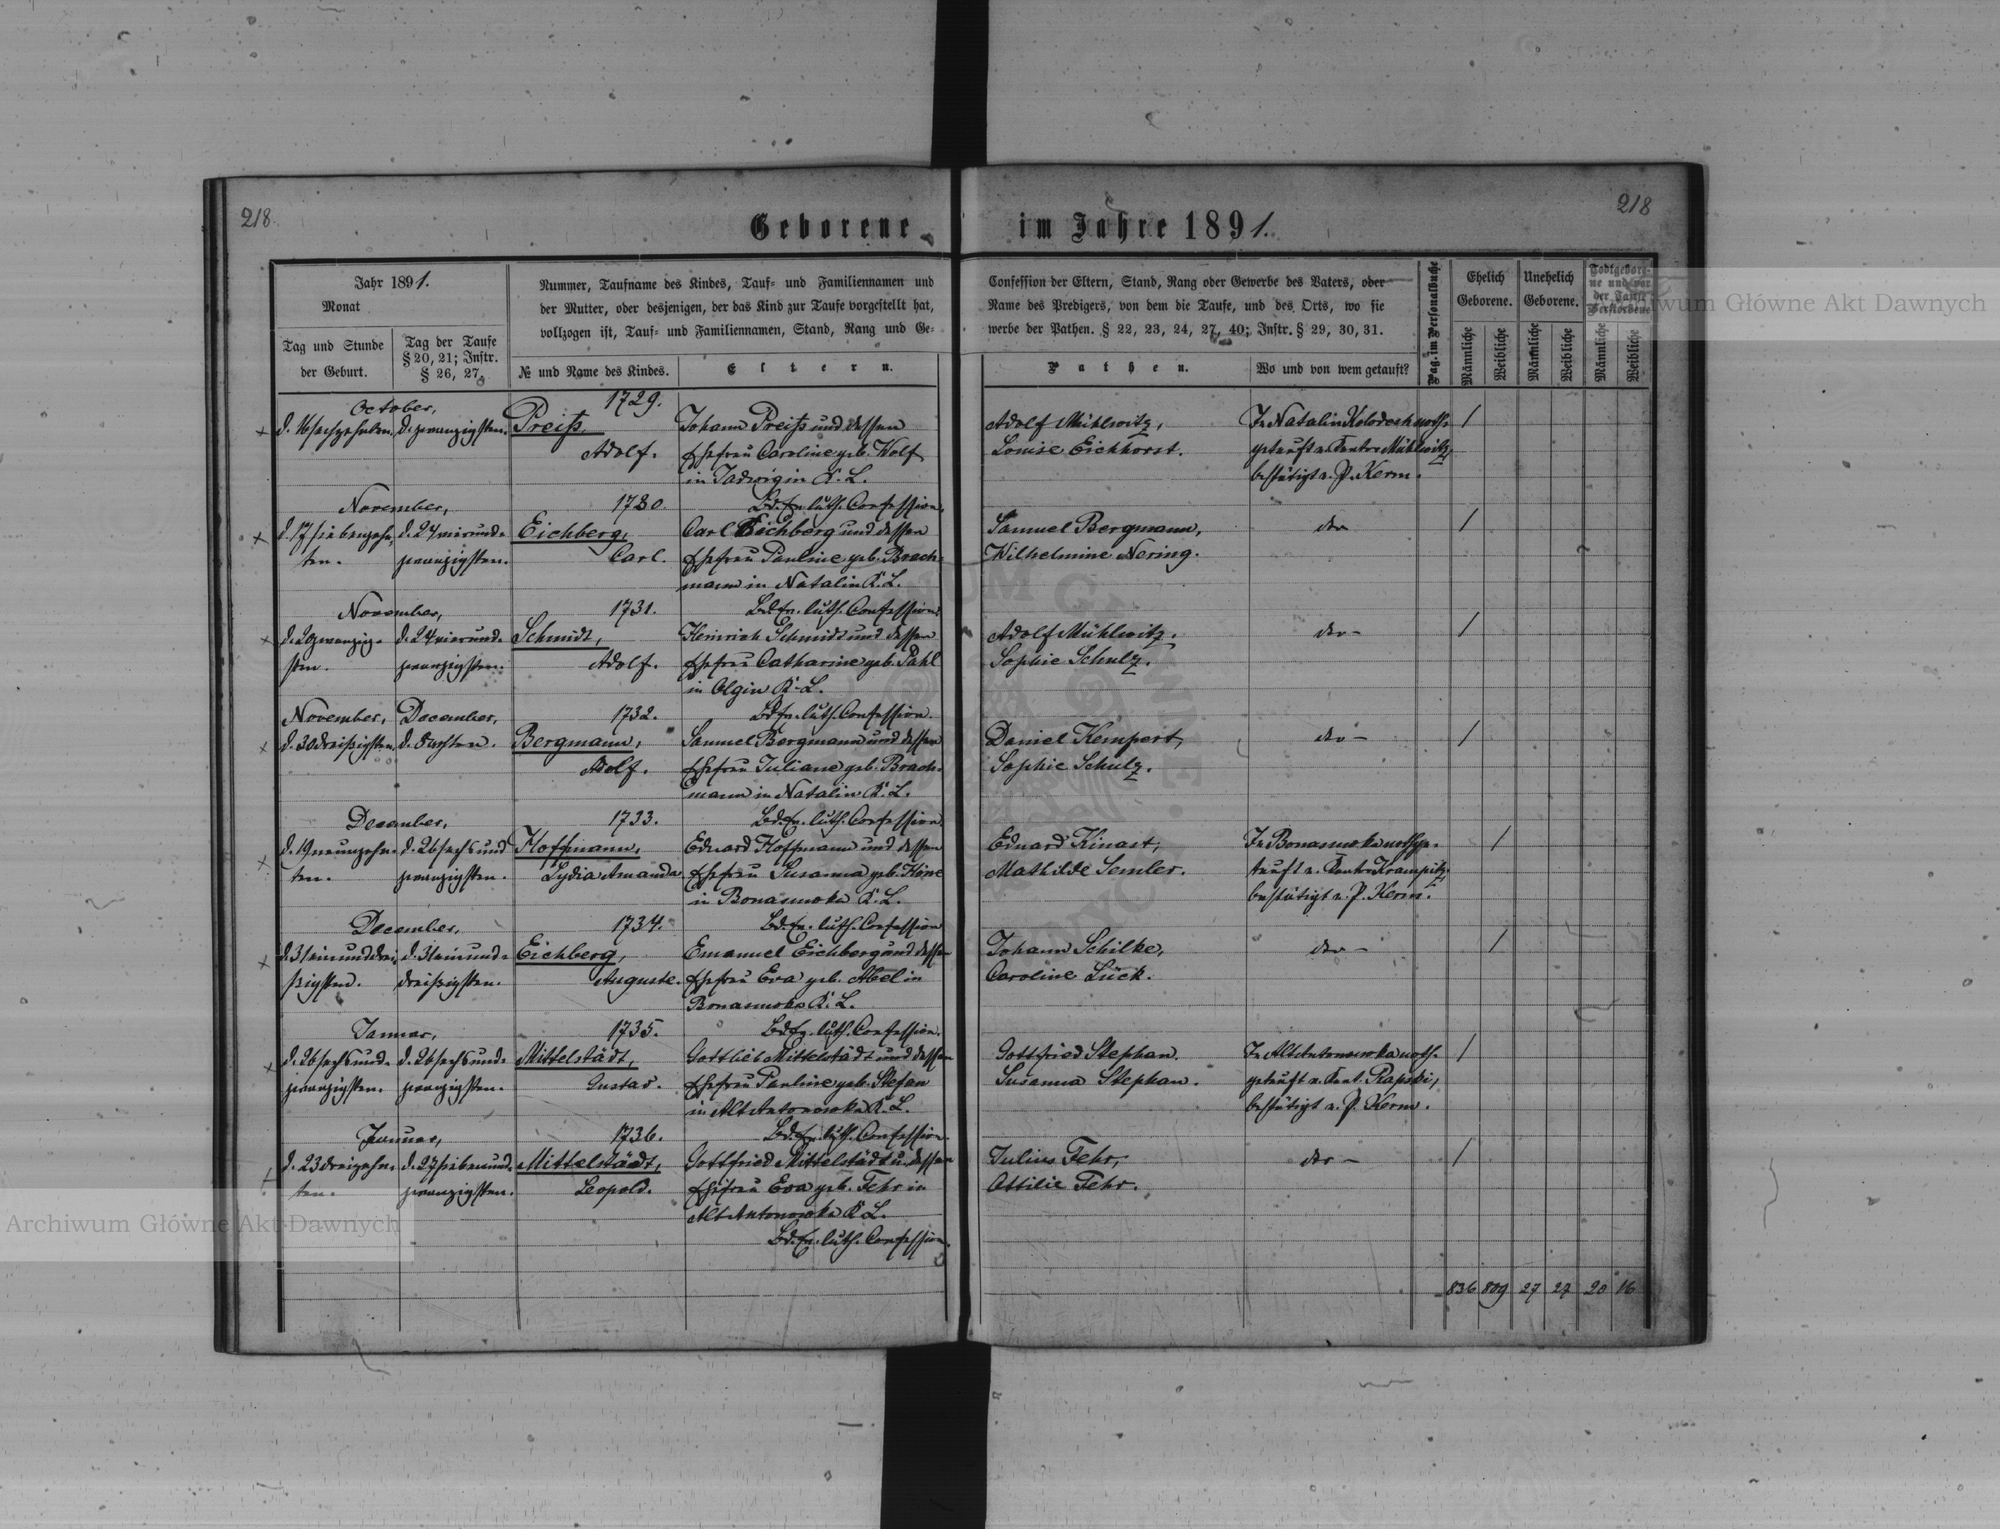 218.
218
Geborene im Jahre 1891.
Jahr 1891.
Monat
Tag und Stunde
der Geburt.
Tag der Taufe
§ 20, 21; Instr.
§ 26, 27.
Nummer, Taufname des Kindes, Tauf- und Familiennamen und
der Mutter, oder desjenigen, der das Kind zur Taufe vorgestellt hat,
vollzogen ist, Tauf- und Familiennamen, Stand, Rang und Ge-
№ und Name des Kindes.
Eltern.
Confession der Eltern, Stand, Rang oder Gewerbe des Vaters, oder
Name des Predigers, von dem die Taufe, und des Orts, wo sie
werbe der Pathen. § 22, 23, 24, 27, 40; Instr. § 29, 30, 31.
Pathen.
Wo und von wem getauft?
Pag. im Personalbuche
Ehelich
Geborene.
Unehelich
Geborene.
Todtgebore-
ne und vor
der Taufe
Verstorbene
Männliche
Weibliche
Männliche
Weibliche
Männliche
Weibliche
October,
1729.
d. 16 sechzehnten
d. zwanzigsten.
Preiß,
Adolf.
Johann Preiß und dessen
Ehefrau Caroline geb. Wolf
in Jadwigin K. L.
Bd. ev. luth. Confession.
Adolf Mühlwitz,
Louise Eichhorst.
In Natalin Kolodesk noth-
getauft v. Kantor Mühlwitz,
bestätigt v. P. Kerm.
1
November,
1730.
d. 17 siebenzehn-
ten.
d. 24 vierund-
zwanzigsten.
Eichberg,
Carl.
Carl Eichberg und dessen
Ehefrau Pauline geb. Brach-
mann in Natalin K. L.
Bd. ev. luth. Confession.
Samuel Bergmann,
Wilhelmine Nering.
do
1
November,
1731.
d. 20 zwanzig-
sten.
d. 24 vierund-
zwanzigsten.
Schmidt,
Adolf.
Heinrich Schmidt und dessen
Ehefrau Catharine geb. Pahl
in Olgin K. L.
Bd. ev. luth. Confession.
Adolf Mühlwitz.
Sophie Schulz.
do -
1
November,
December,
1732.
d. 30 dreißigsten
d. 8 achten.
Bergmann,
Adolf.
Samuel Bergmann und dessen
Ehefrau Juliane geb. Brach-
mann in Natalin K. L.
Bd. ev. luth. Confession.
Daniel Kempert,
Sophie Schulz.
do -
1
December,
1733.
d. 19 neunzehn-
ten.
d. 26 sechsund
zwanzigsten.
Hoffmann,
Lydia Amanda.
Eduard Hoffmann und dessen
Ehefrau Susanna geb.
in Bonasuwka K. L.
Bd. ev. luth. Confession
Eduard Kinast,
Mathilde Semler.
In Bonasuwka nothge-
tauft v. Kantor Krampitz,
bestätigt v. P. Kerm.
1
December,
1734.
d. 31 einunddrei-
ßigsten.
d. 31 einund-
dreißigsten.
Eichberg,
Auguste.
Emanuel Eichberg und dessen
Ehefrau Eva geb. Abel in
Bonasuwka K. L.
Bd. ev. luth. Confession.
Johann Schilke,
Caroline Lück.
do -
1
Januar,
1735.
d. 26 sechsund-
zwanzigsten.
d. 26 sechsund-
zwanzigsten.
Mittelstädt,
Gustav.
Gottlieb Mittelstädt und dessen
Ehefrau Pauline geb. Stefan
in Alt Antonowka K. L.
Bd. ev. luth. Confession.
Gottfried Stephan.
Susanna Stephan.
In Alt Antonowka noth-
getauft v. Kant. Rapski,
bestätigt v. P. Kerm.
1
Januar,
1736.
d. 23 dreizehn-
ten.
d. 27 siebenund-
zwanzigsten.
Mittelstädt,
Leopold.
Gottfried Mittelstädt u. dessen
Ehefrau Eva geb. Fehr in
Alt Antonowka K. L.
Bd. ev. luth. Confession.
Julius Fehr,
Ottilie Fehr.
do -
1
836 809 27 27 20 16
Archiwum Główne Akt Dawnych
Archiwum Główne Akt Dawnych